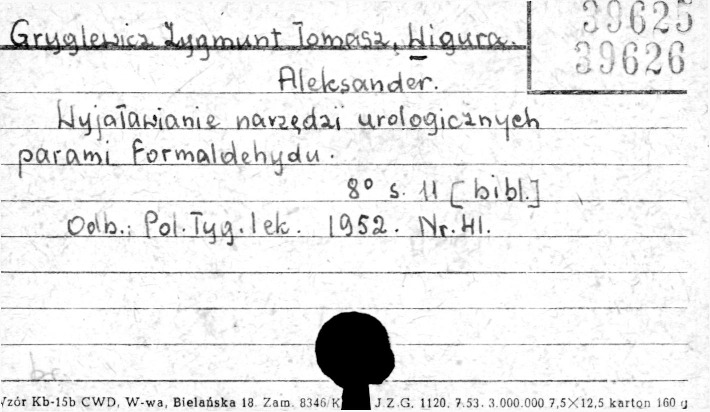 39625
39626
Gryglewicz Zygmunt Tomasz, Wigura
Aleksander.
Wyjaławianie narzędzi urologicznych
parami formaldehydu.
8° s. 11 [bibl.]
Odb.: Pol. Tyg. lek. 1952. Nr. 41.
br.
Wzór Kb-15b CWD, W-wa, Bielańska 18. Zam. 8346/K J.Z.G. 1120. 7.53. 3.000.000 7,5×12,5 karton 160 g